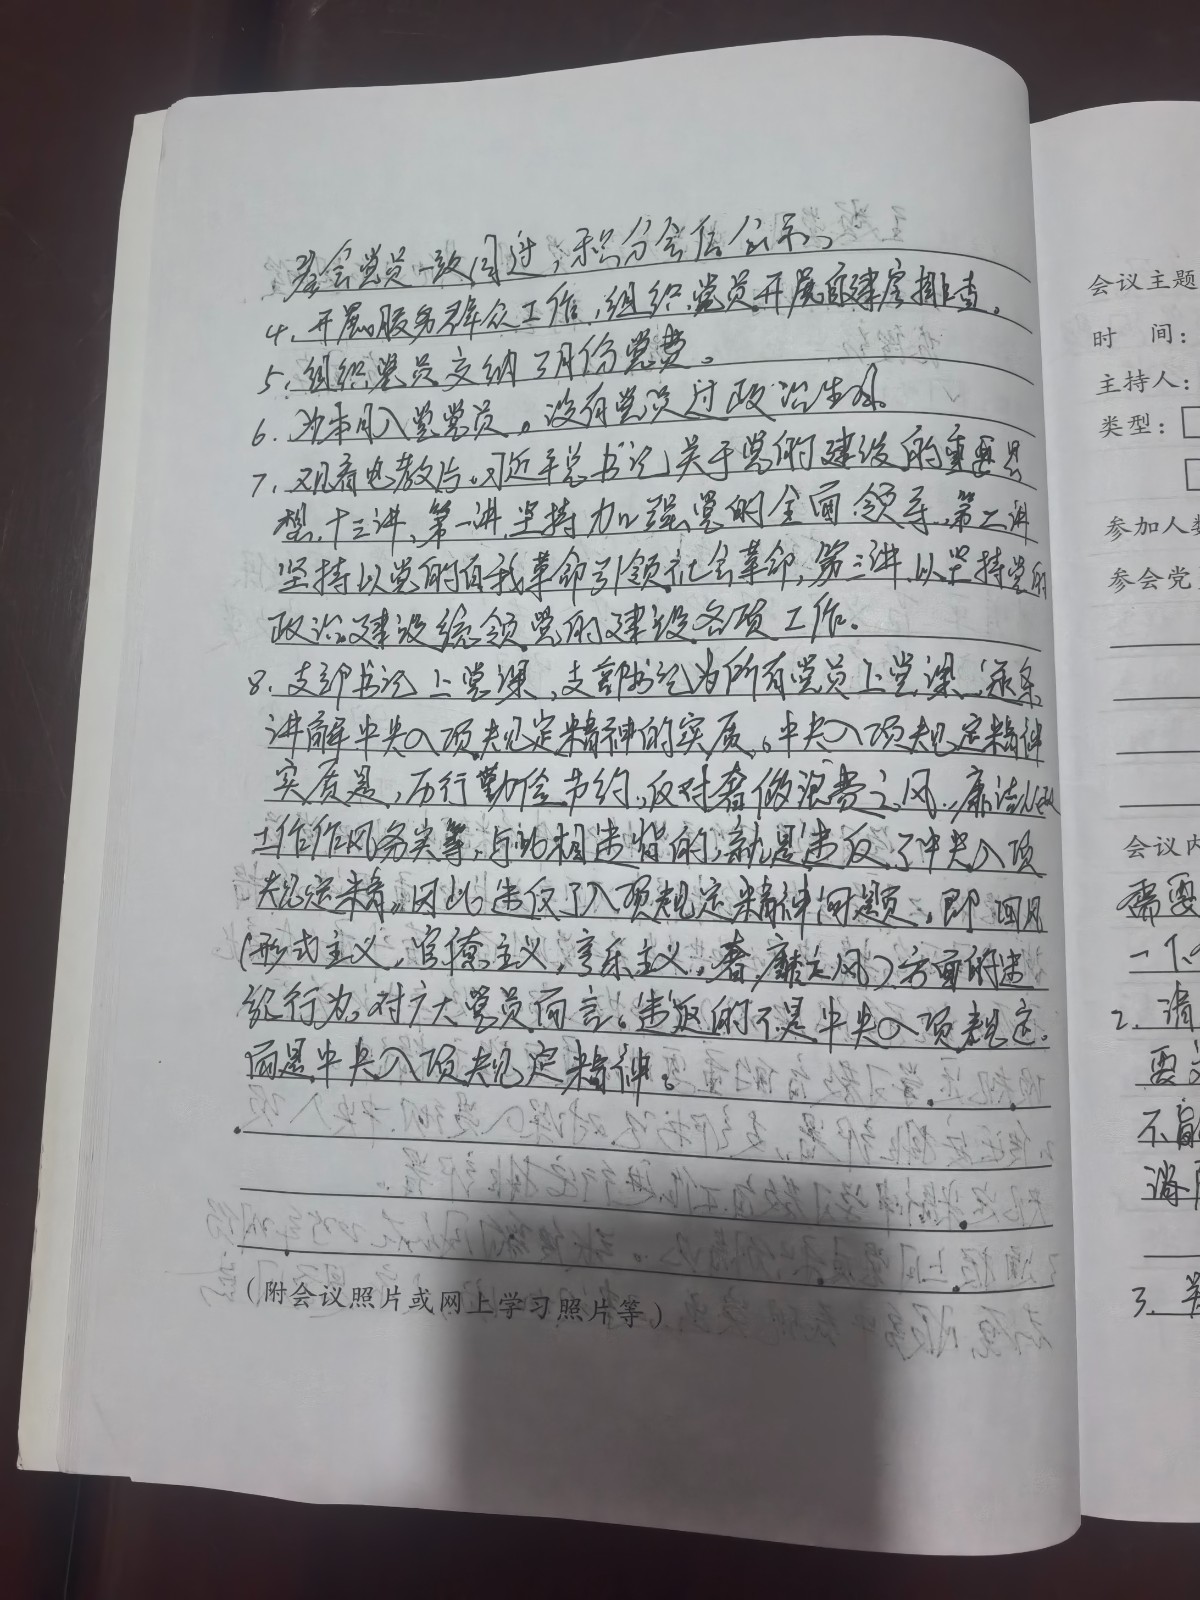 参会党员一致同意，积分会后公示。
4、开展服务群众工作，组织党员开展房屋排查。
5、组织党员交纳7月份党费。
6、为本月入党党员。没有党员过政治生日。
7、观看电教片。习近平总书记关于党的建设的重要思
想，十三讲，第一讲坚持加强党的全面领导，第二讲
坚持以党的自我革命引领社会革命，第三讲以坚持党的
政治建设统领党的建设各项工作。
8、支部书记上党课，支部书记为所有党员上党课，逐条
讲解中央八项规定精神的实质。中央八项规定精神
实质是，厉行勤俭节约，反对奢侈浪费之风，廉洁从政
工作作风务实等，与此相违背的，就是违反了中央八项
规定精。因此违反了八项规定精神问题，即四风
（形式主义，官僚主义，享乐主义，奢靡之风）方面的违
纪行为。对广大党员而言。违反的不是中央八项规定。
而是中央八项规定精神。
（附会议照片或网上学习照片等）
会议主题
时 间：
主持人：
类型：
参加人数
参会党
会议内
需要
一个
2、清
要
不能
3、